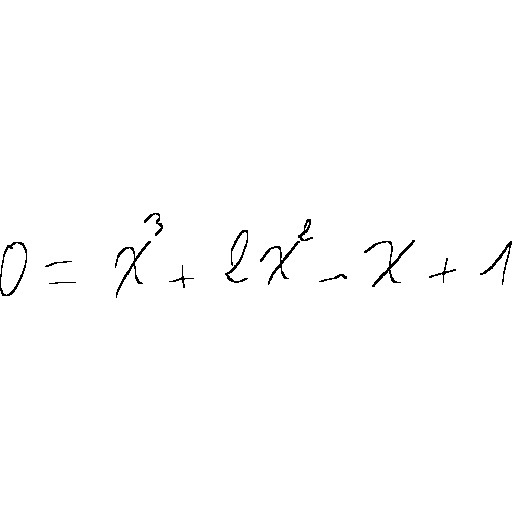 0 = x³ + 2x² - x + 1